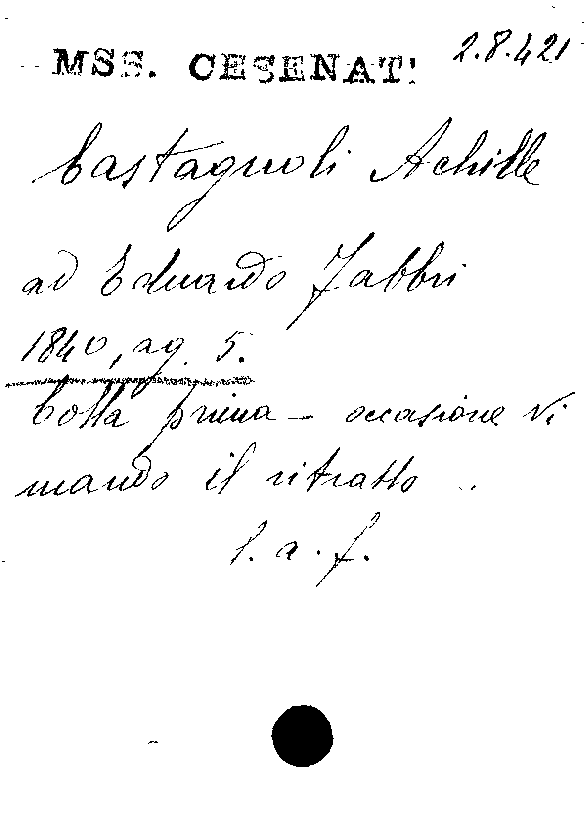 MSS. CESENATI 2.8.421
Castagnoli Achille
ad Eduardo Fabbri
1840, ag. 5.
Colla prima - occasione vi
mando il ritratto ..
l. a. f.